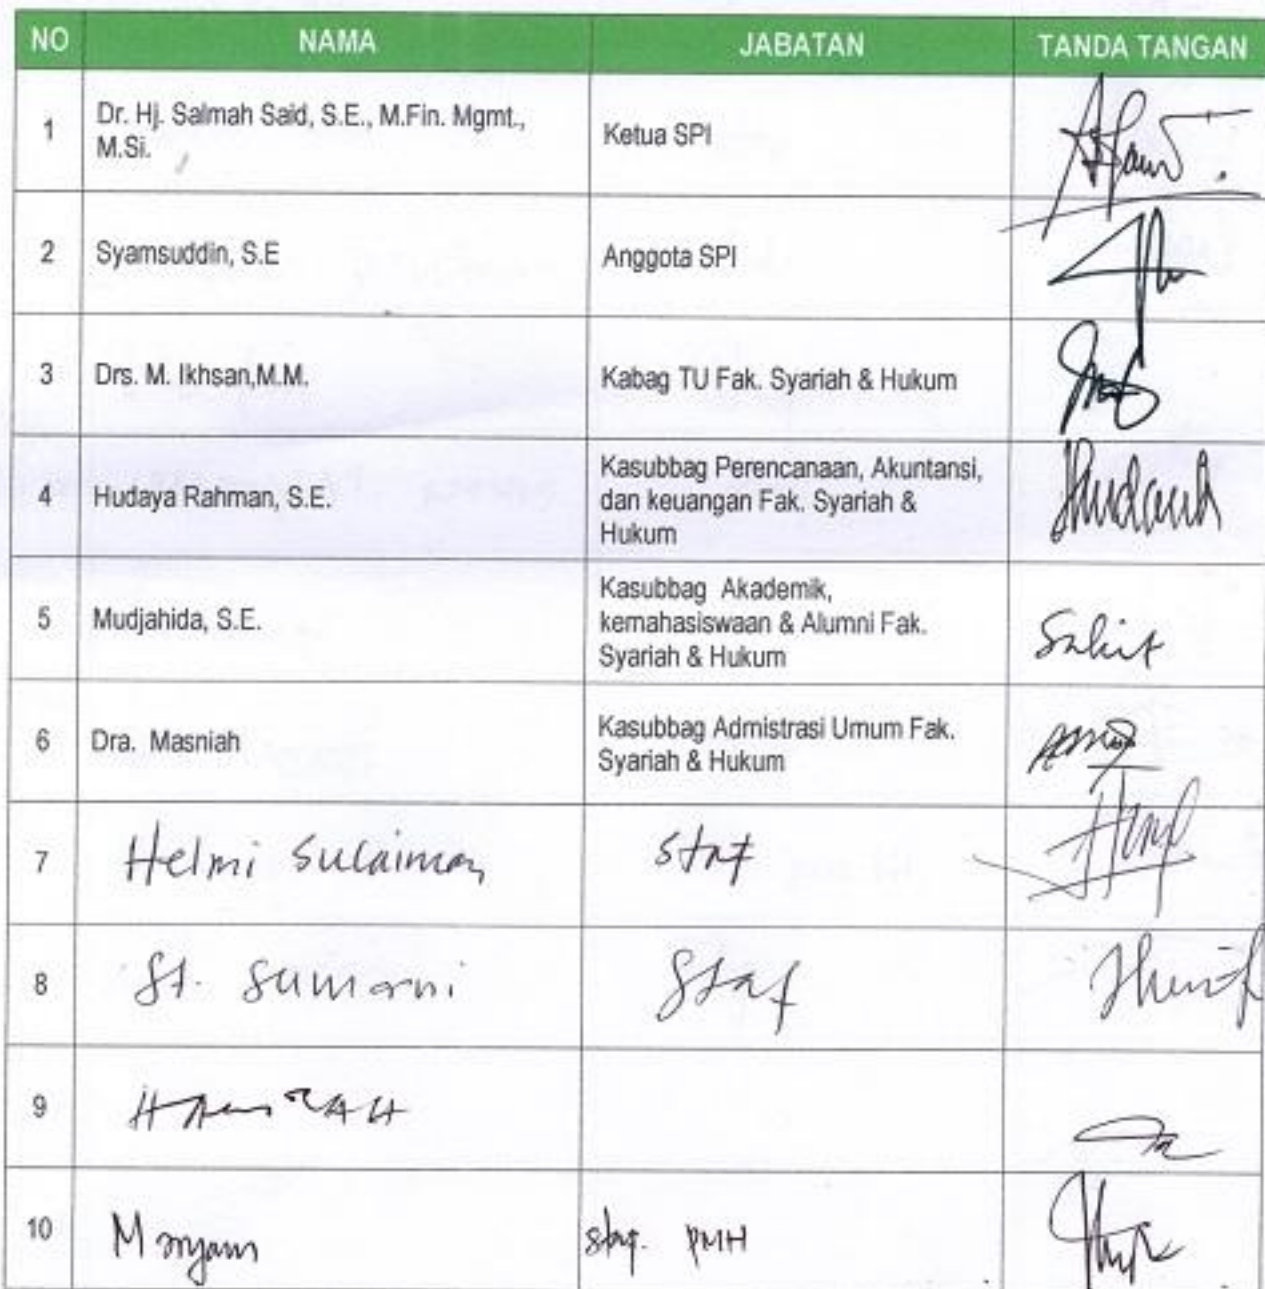 NO NAMA JABATAN TANDA TANGAN
1 Dr. Hj. Salmah Said, S.E., M.Fin. Mgmt., M.Si. Ketua SPI
2 Syamsuddin, S.E Anggota SPI
3 Drs. M. Ikhsan,M.M. Kabag TU Fak. Syariah & Hukum
4 Hudaya Rahman, S.E. Kasubbag Perencanaan, Akuntansi, dan keuangan Fak. Syariah & Hukum
5 Mudjahida, S.E. Kasubbag Akademik, kemahasiswaan & Alumni Fak. Syariah & Hukum Sakit
6 Dra. Masniah Kasubbag Admistrasi Umum Fak. Syariah & Hukum
7 Helmi Sulaiman Staf
8 St. Sumarni Staf
9
10 Maryam Staf. PMH